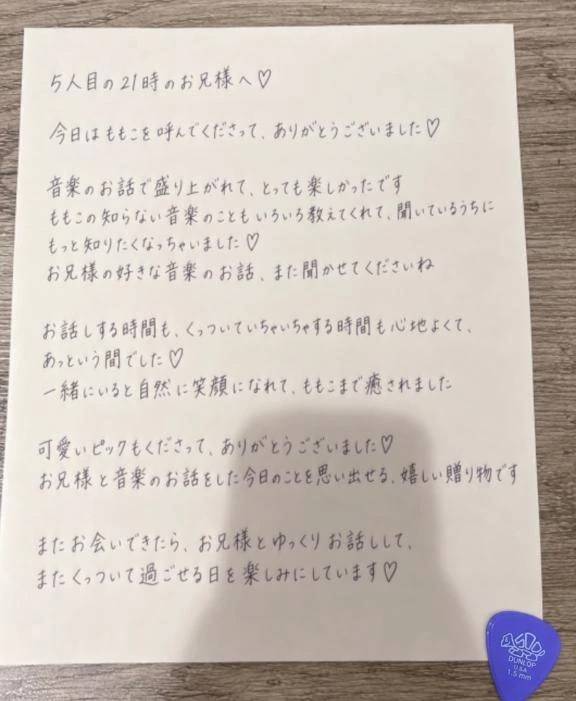 5人目の21時のお兄様へ♡
今日はももこを呼んでくださって、ありがとうございました♡
音楽のお話で盛り上がれて、とっても楽しかったです
ももこの知らない音楽のこともいろいろ教えてくれて、聞いているうちに
もっと知りたくなっちゃいました♡
お兄様の好きな音楽のお話、また聞かせてくださいね
お話しする時間も、くっついていちゃいちゃする時間も心地よくて、
あっという間でした♡
一緒にいると自然に笑顔になれて、ももこまで癒されました
可愛いピックもくださって、ありがとうございました♡
お兄様と音楽のお話をした今日のことを思い出せる、嬉しい贈り物です
またお会いできたら、お兄様とゆっくりお話しして、
またくっついて過ごせる日を楽しみにしています♡
DUNLOP
USA
1.5mm